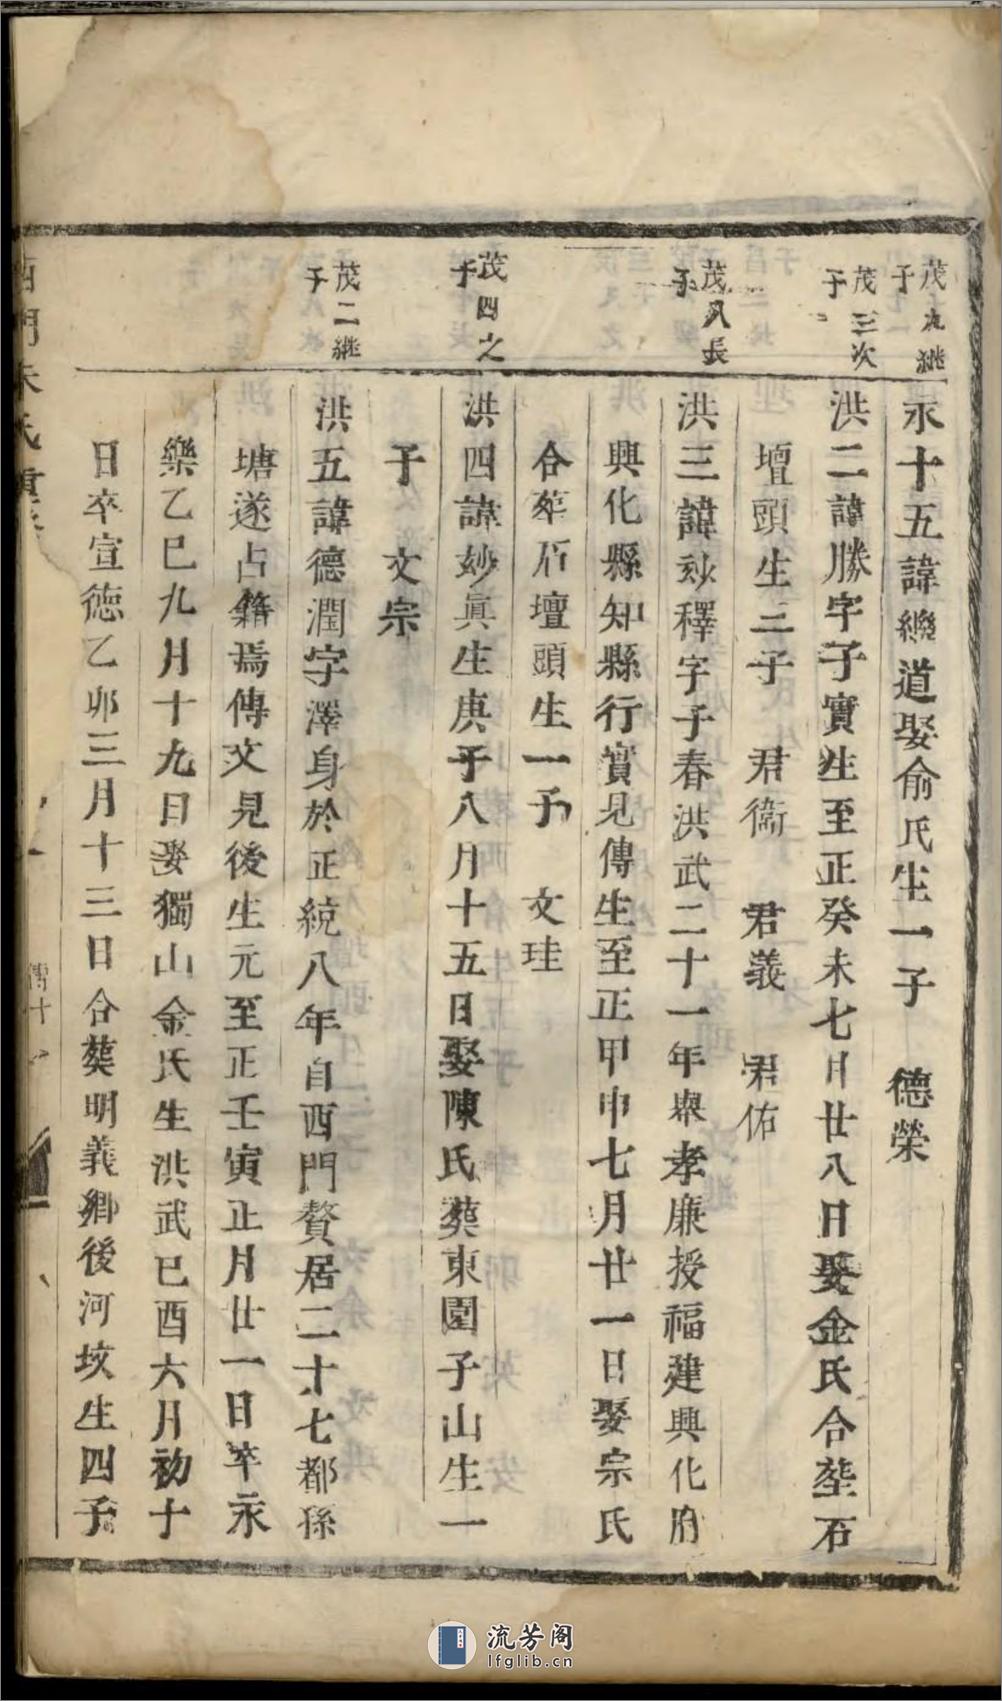 茂九繼子
永十五諱纘道娶俞氏生一子　德榮
茂三次子
洪二諱勝字子實生至正癸未七月廿八日娶金氏合塟石
壇頭生三子　君衞　君義　君佑
茂八長子
洪三諱玅釋字子春洪武二十一年舉孝廉授福建興化府
興化縣知縣行實見傳生至正甲申七月廿一日娶宗氏
合塟石壇頭生一子　文珪
茂四之子
洪四諱妙真生庚子八月十五日娶陳氏葬東園子山生一
子　文宗
茂二繼子
洪五諱德潤字澤身於正統八年自西門贅居二十七都孫
塘遂占籍焉傳文見後生元至正壬寅正月廿一日卒永
樂乙巳九月十九日娶獨山金氏生洪武己酉六月初十
日卒宣德乙卯三月十三日合葬明義鄉後河坟生四子
西門朱氏
傳十
流芳阁
lfglib.cn